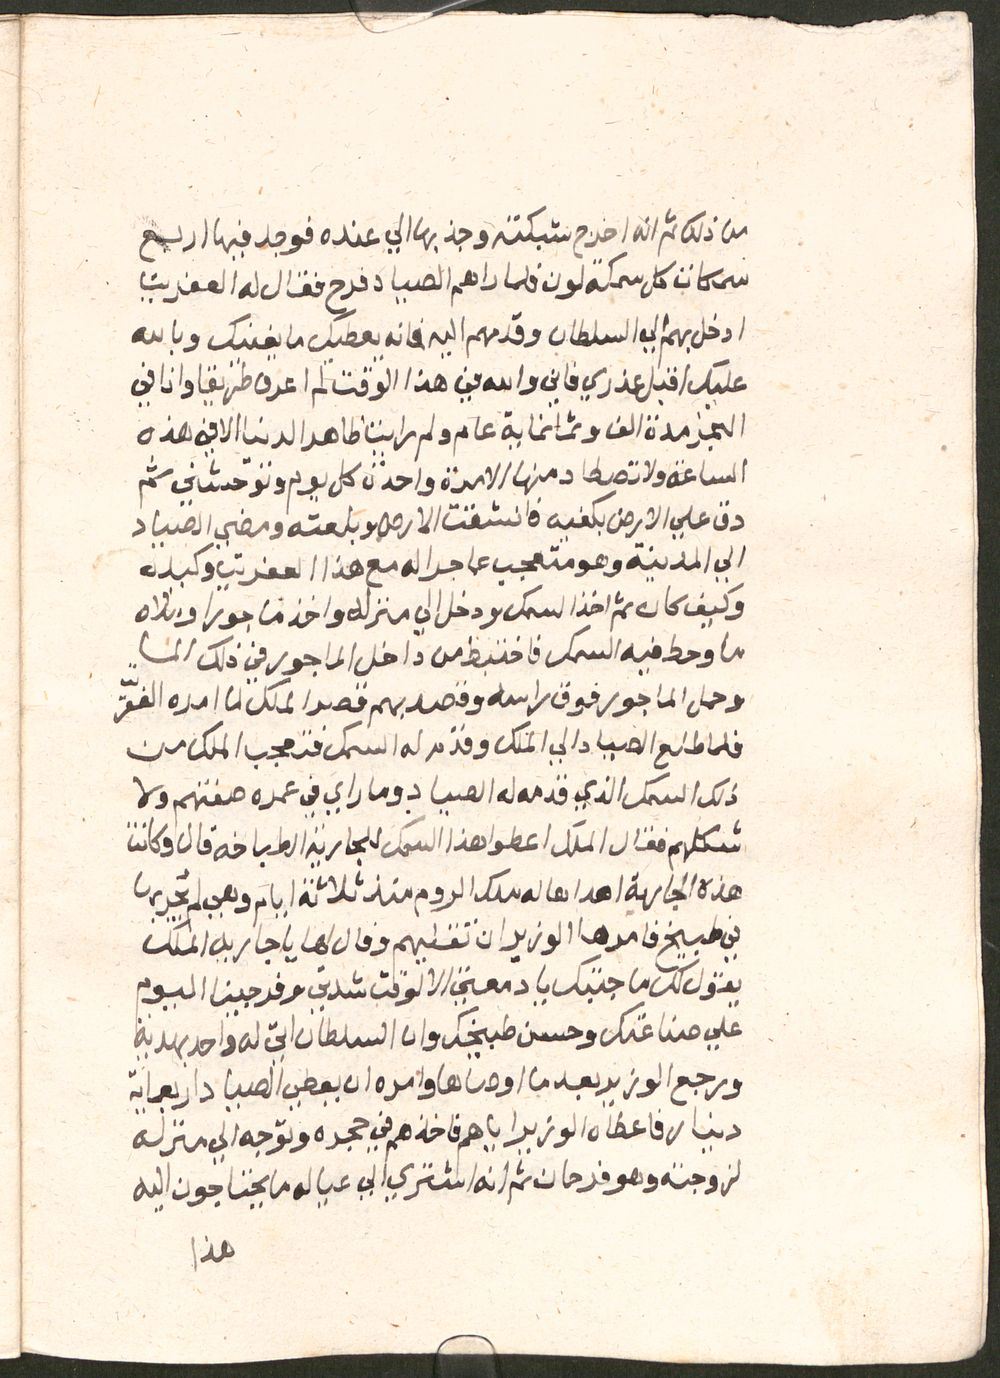 من ذلك ثم انه اخرج شبكته وجذبها الي عنده فوجد فيها اربع
سمكات كل سمكة لون فلما راهم الصياد فرح فقال له العفريت
ادخل بهم الي السلطان وقدمهم اليه فانه يعطيك ما يغنيك وبالله
عليك اقبل عذري فاني والله في هذا الوقت لم اعرف طريقا وانا في
البحر مدة الف وثمانماية عام ولم رايت ظاهر الدنيا الا في هذه
الساعة ولا تصطاد منها الا مرة واحدة كل يوم وتوحشني ثم
دق علي الارض بكفيه فانشقت الارض وبلعته ومضي الصياد
الي المدينة وهو متعجب مما جرا له مع هذا العفريت وكيده
وكيف كان ثم اخذ السمك ودخل الي منزله واخذ ماجورا وملاه
ما وحط فيه السمك فاختبط من داخل الماجور في ذلك الما
وحمل الماجور فوق راسه وقصد بهم قصر الملك كما امره العفريت
فلما طلع الصياد الي الملك وقدم له السمك فتعجب الملك من
ذلك السمك الذي قدمه له الصياد وما راي في عمره صفتهم ولا
شكلهم فقال الملك اعطوا هذا السمك للجارية الطباخه قال وكانت
هذه الجارية اهداها له ملك الروم منذ ثلاثة ايام وهي لم تجربها
في طبيخ فامرها الوزير ان تقليهم وقال لها يا جارية الملك
يقول لك ما جبتيك يا دمعتي الا لوقت شدتي فرجينا اليوم
علي صناعتك وحسن طبيخك وان السلطان اتي له واحد بهدية
ورجع الوزير بعد ما اوصاها وامره ان يعطي الصياد اربعماية
دينار فاعطاه الوزير اياهم فاخذهم في حجره وتوجه الي منزله
لزوجته وهو فرحان ثم انه اشتري الي عياله ما يحتاجون اليه
هذا